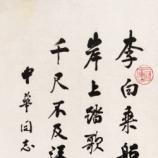 李白乘
岸上踏歌
千尺不及汪
中華同志